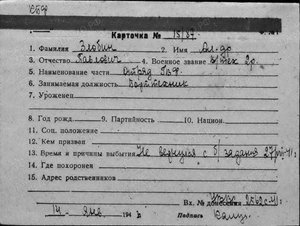 СБФ
Карточка № 15/87
1. Фамилия Злобин 2. Имя Ал-др
3. Отчество Павлович 4. Военное звание в/тех 2р.
5. Наименование части Отряд ГВФ
6. Занимаемая должность Бортехник
7. Уроженец
8. Год рожд. 9. Партийность 10. Национ.
11. Соц. положение
12. Кем призван
13. Время и причины выбытия Не вернулся с б/задания
14. Где похоронен
15. Адрес родственников
Вх. № донесения
14 янв. 194
Подпись